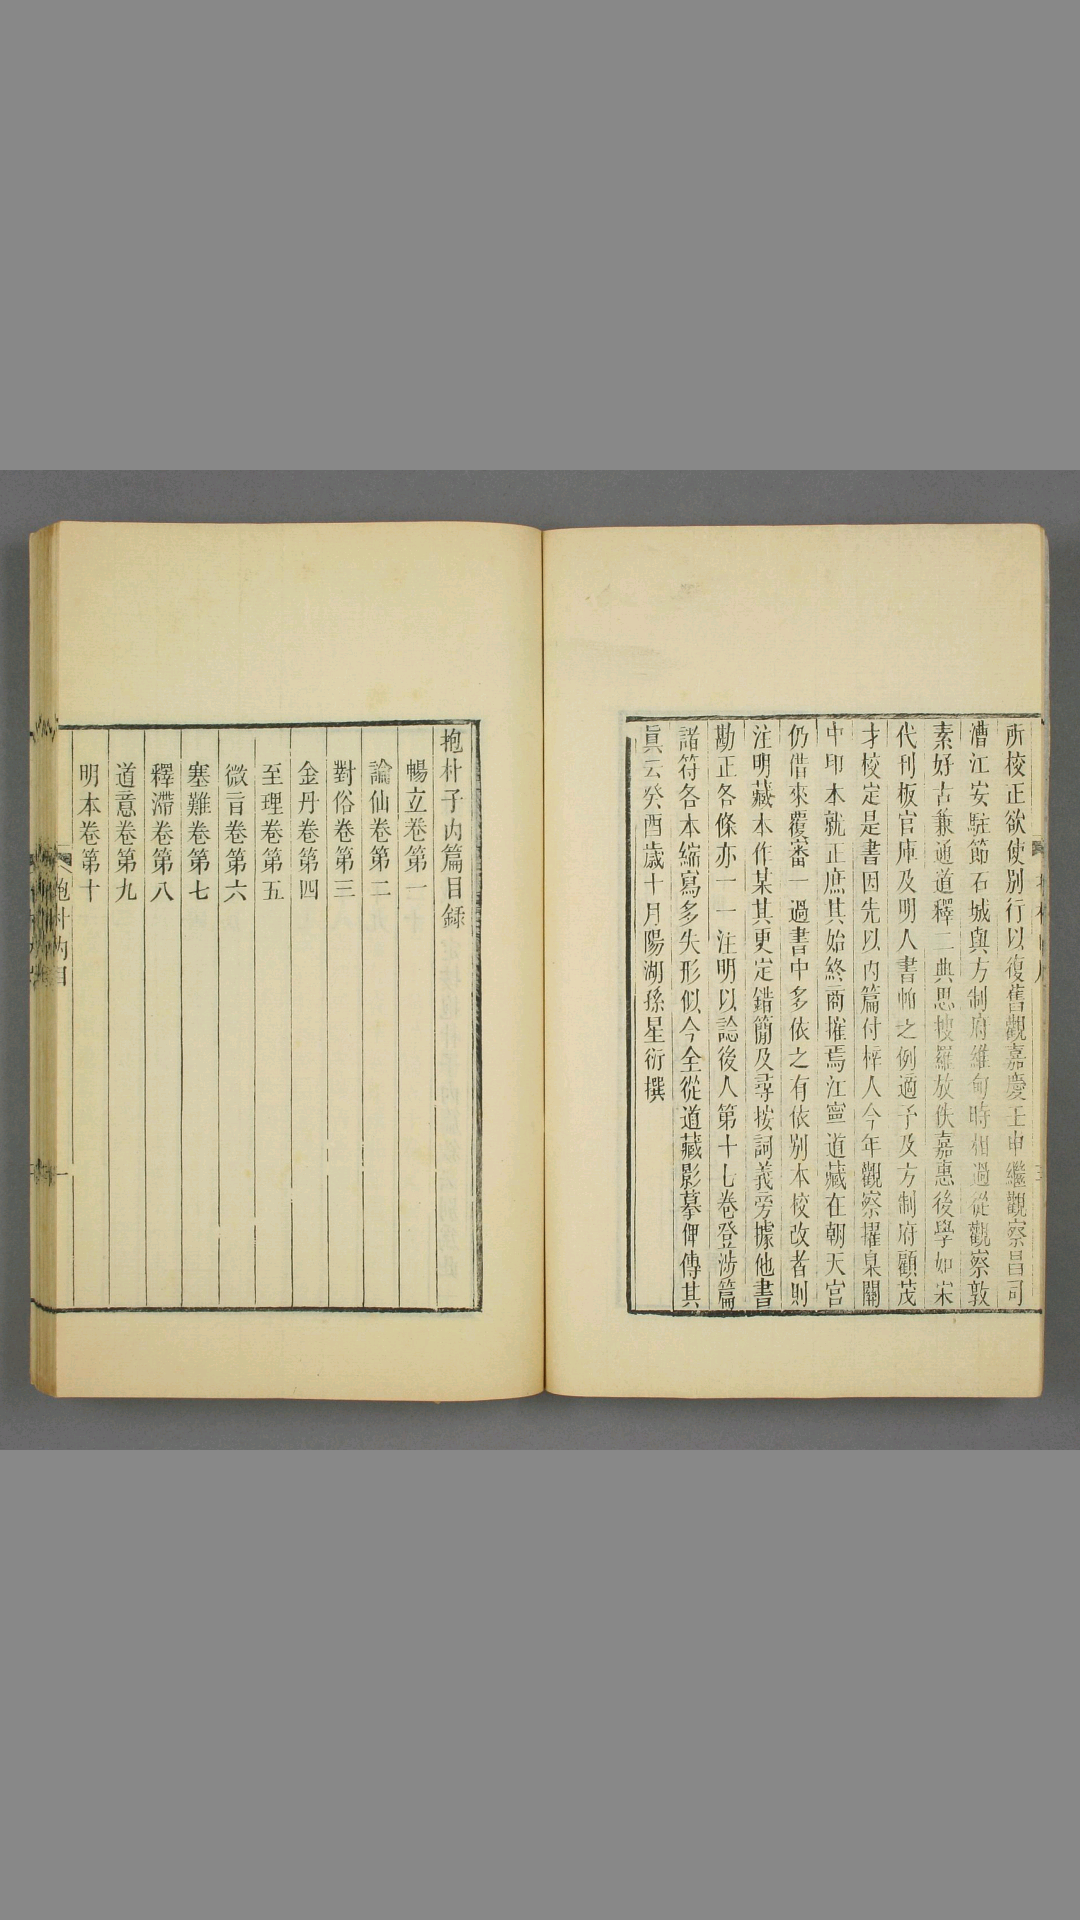 所校正欲使別行以復舊觀嘉慶壬申繼觀察昌司
漕江安駐節石城與方制府維甸時相過從觀察敦
素好古兼通道釋二典思搜羅放佚嘉惠後學如宋
代刊板官庫及明人書帕之例適予及方制府顧茂
才校定是書因先以內篇付梓人今年觀察擢臬關
中印本就正庶其始終商搉焉江寧道藏在朝天宮
仍借來覆審一過書中多依之有依別本校改者則
注明藏本作某其更定錯簡及尋按詞義旁據他書
勘正各條亦一一注明以諗後人第十七卷登涉篇
諸符各本縮寫多失形似今全從道藏影摹俾傳其
眞云癸酉歲十月陽湖孫星衍撰
抱朴子內篇目錄
暢玄卷第一
論仙卷第二
對俗卷第三
金丹卷第四
至理卷第五
微言卷第六
塞難卷第七
釋滯卷第八
道意卷第九
明本卷第十
抱朴內目
一